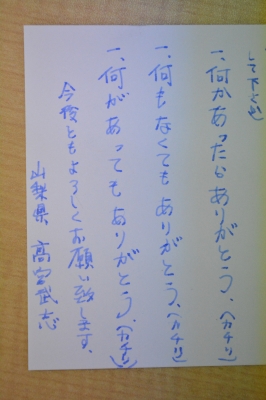 して下さい
一、何かあったらありがとう、(カチッ)
一、何もなくてもありがとう、(カチッ)
一、何があってもありがとう、(カチッ)
今後ともよろしくお願い致します。
山梨県 高宮武志